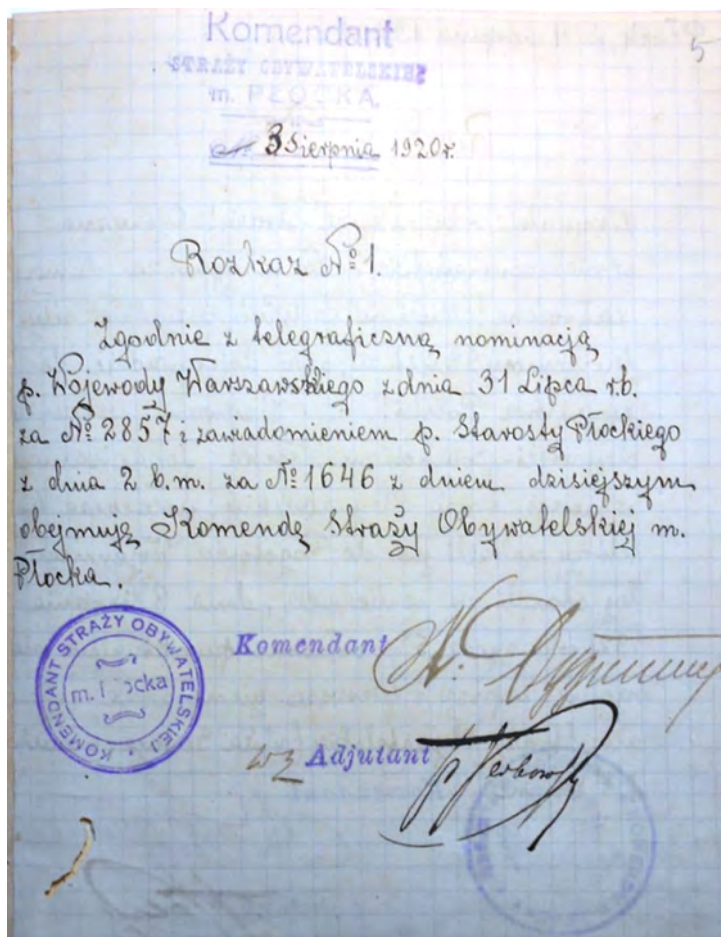 Komendant
STRAŻY OBYWATELSKIEJ
m. PŁOCKA.
5
3 Sierpnia 1920r.
Rozkaz № 1.
Zgodnie z telegraficzną nominacją
p. Wojewody Warszawskiego z dnia 31 Lipca r.b.
za № 2857 i zawiadomieniem p. Starosty Płockiego
z dnia 2 b.m. za № 1646 z dniem dzisiejszym
obejmuję Komendę Straży Obywatelskiej m.
Płocka.
KOMENDANT STRAŻY OBYWATELSKIEJ
m. Płocka
Komendant
wz Adjutant